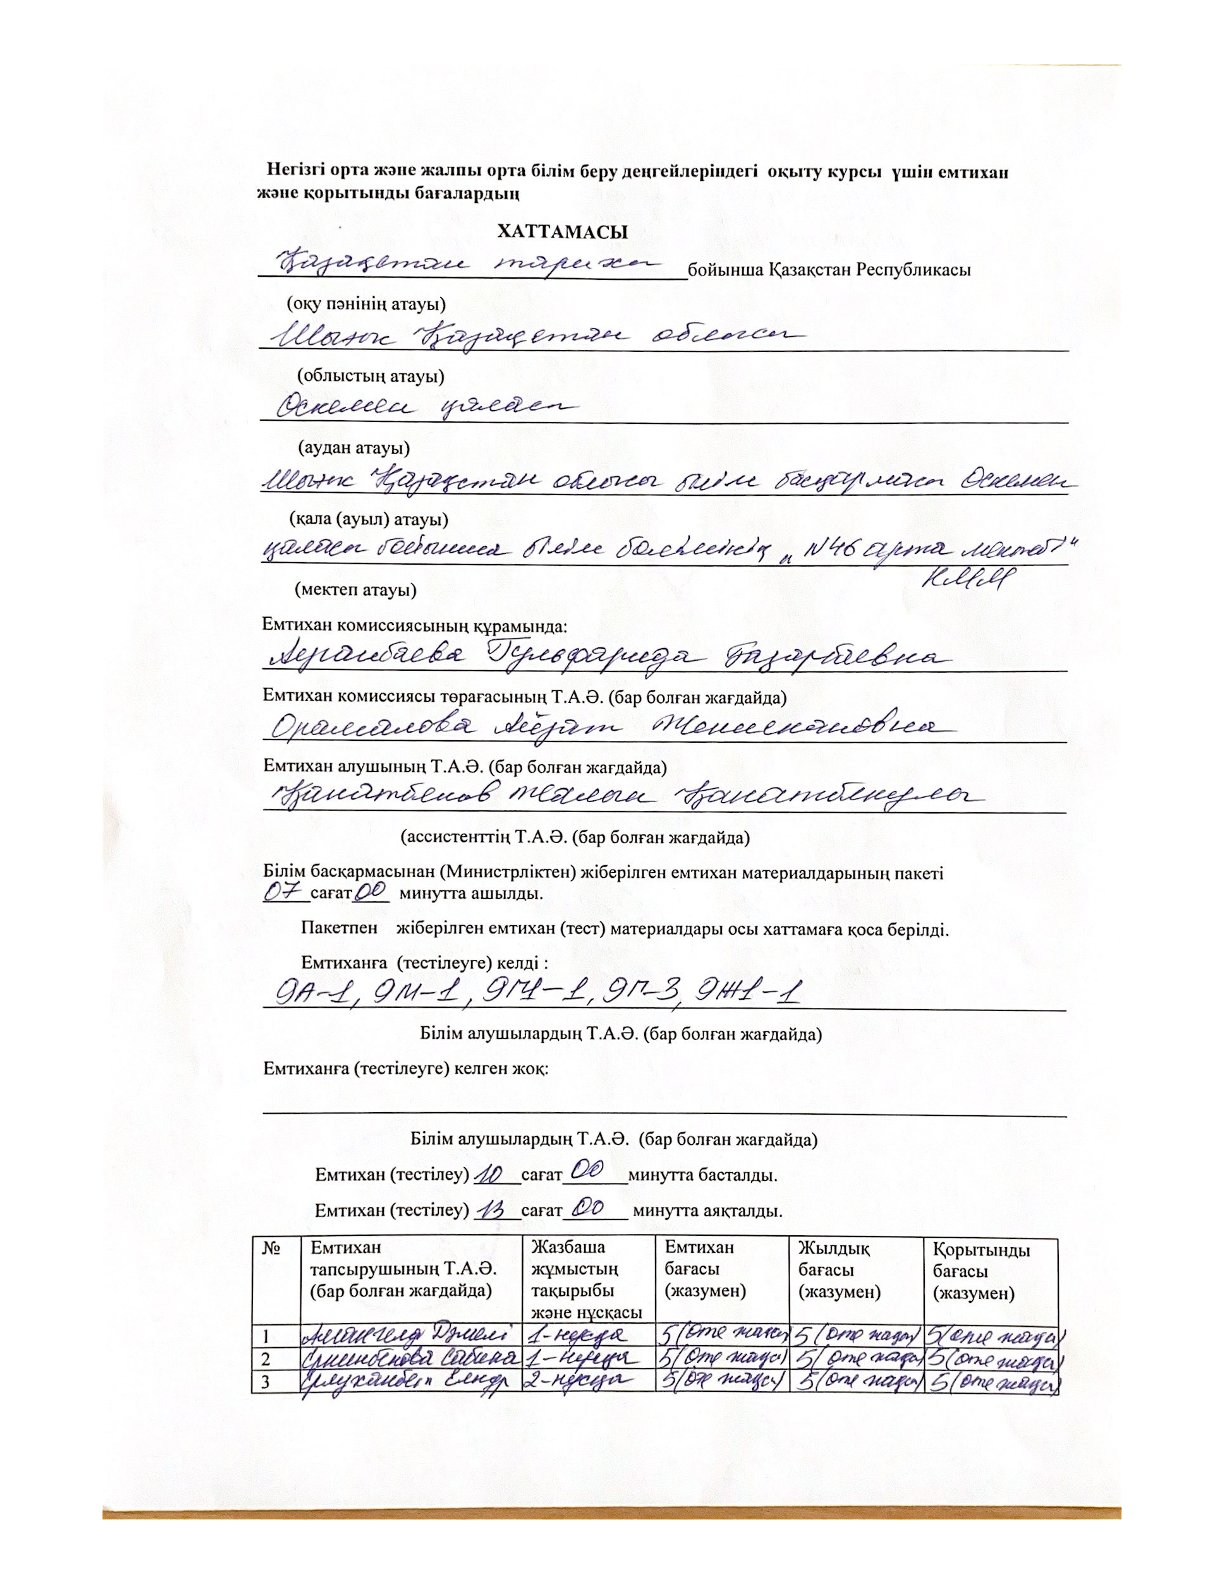 Негізгі орта және жалпы орта білім беру деңгейлеріндегі оқыту курсы үшін емтихан
және қорытынды бағалардың
ХАТТАМАСЫ
Қазақстан тарихы бойынша Қазақстан Республикасы
(оқу пәнінің атауы)
Шығыс Қазақстан облысы
(облыстың атауы)
Өскемен қаласы
(аудан атауы)
Шығыс Қазақстан облысы білім басқармасы Өскемен
(қала (ауыл) атауы)
қаласы бойынша білім бөлімінің "N46 орта мектебі"
КММ
(мектеп атауы)
Емтихан комиссиясының құрамында:
Гульфарида Базарбаевна
Емтихан комиссиясы төрағасының Т.А.Ә. (бар болған жағдайда)
Орамалова
Емтихан алушының Т.А.Ә. (бар болған жағдайда)
Қанатбеков Жалын Қанатбекұлы
(ассистенттің Т.А.Ә. (бар болған жағдайда)
Білім басқармасынан (Министрліктен) жіберілген емтихан материалдарының пакеті
07 сағат 00 минутта ашылды.
Пакетпен жіберілген емтихан (тест) материалдары осы хаттамаға қоса берілді.
Емтиханға (тестілеуге) келді :
9А-1, 9М-1, 9ГЧ-1, 9П-3, 9Ж1-1
Білім алушылардың Т.А.Ә. (бар болған жағдайда)
Емтиханға (тестілеуге) келген жоқ:
Білім алушылардың Т.А.Ә. (бар болған жағдайда)
Емтихан (тестілеу) 10 сағат 00 минутта басталды.
Емтихан (тестілеу) 13 сағат 00 минутта аяқталды.
№ Емтихан тапсырушының Т.А.Ә. (бар болған жағдайда) Жазбаша жұмыстың тақырыбы және нұсқасы Емтихан бағасы (жазумен) Жылдық бағасы (жазумен) Қорытынды бағасы (жазумен)
1 1-нұсқа 5 (өте жақсы) 5 (өте жақсы) 5 (өте жақсы)
2 Сабина 1-нұсқа 5 (өте жақсы) 5 (өте жақсы) 5 (өте жақсы)
3 2-нұсқа 5 (өте жақсы) 5 (өте жақсы) 5 (өте жақсы)